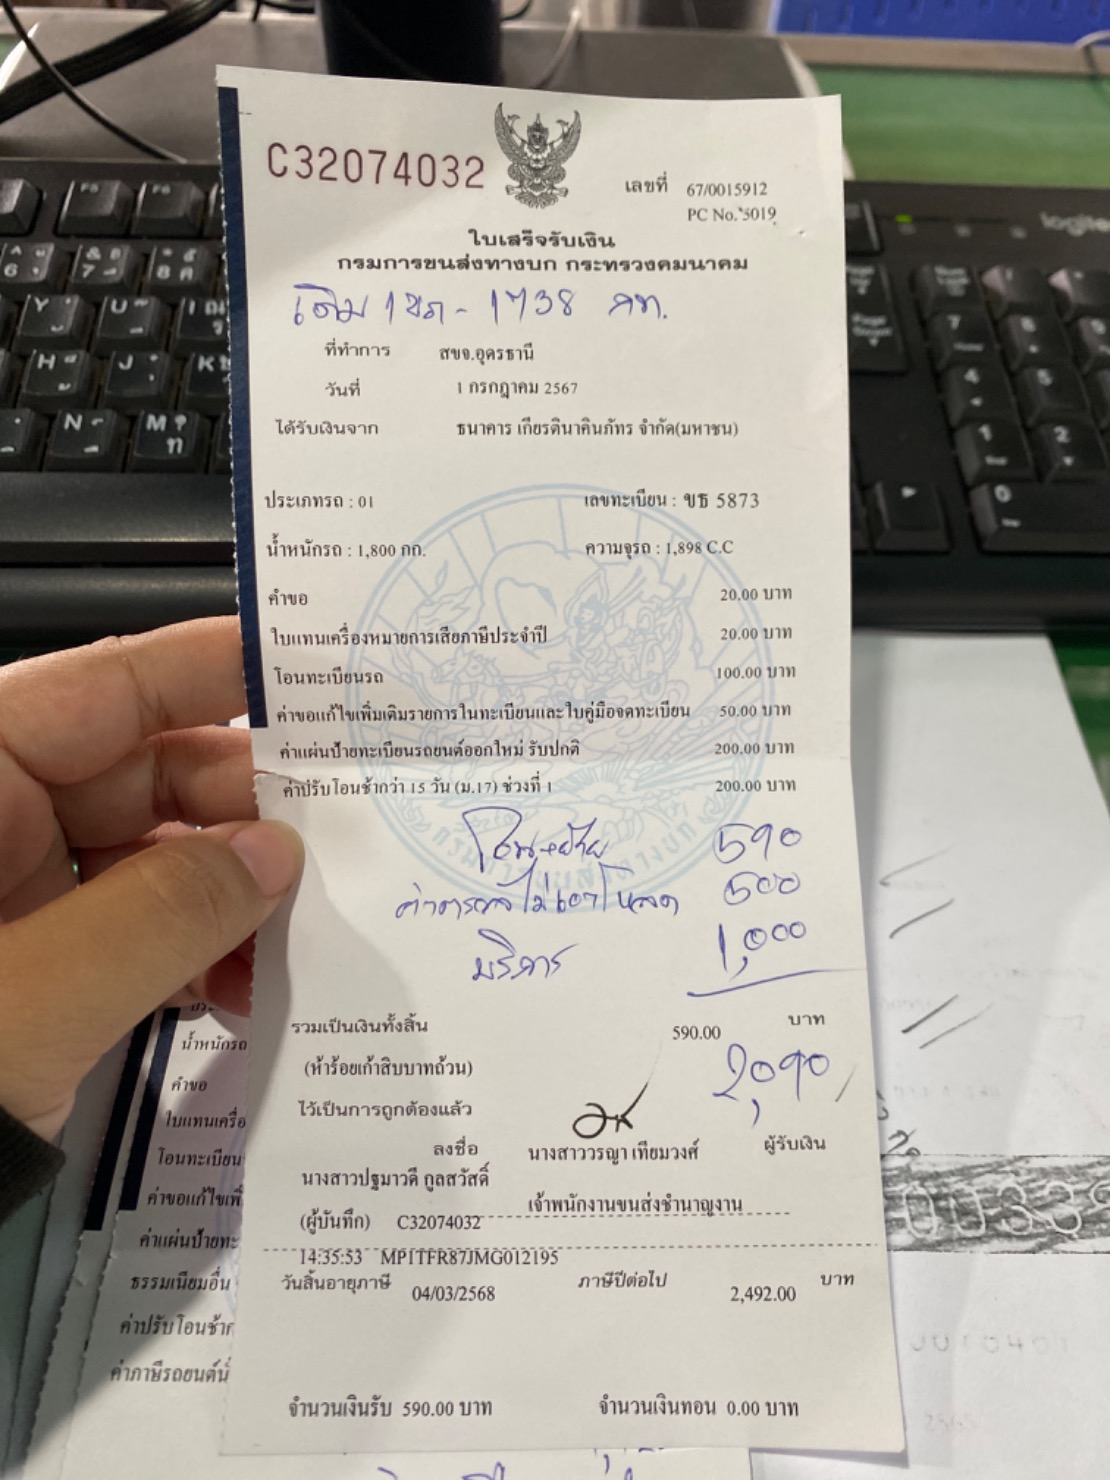 C32074032
เลขที่ 67/0015912
PC No. 5019
ใบเสร็จรับเงิน
กรมการขนส่งทางบก กระทรวงคมนาคม
เดิม 1ขภ - 1738 กท.
ที่ทำการ สขจ.อุดรธานี
วันที่ 1 กรกฎาคม 2567
ได้รับเงินจาก ธนาคาร เกียรตินาคินภัทร จำกัด(มหาชน)
ประเภทรถ : 01 เลขทะเบียน : ขธ 5873
น้ำหนักรถ : 1,800 กก. ความจุรถ : 1,898 C.C
คำขอ 20.00 บาท
ใบแทนเครื่องหมายการเสียภาษีประจำปี 20.00 บาท
โอนทะเบียนรถ 100.00 บาท
ค่าขอแก้ไขเพิ่มเติมรายการในทะเบียนและใบคู่มือจดทะเบียน 50.00 บาท
ค่าแผ่นป้ายทะเบียนรถยนต์ออกใหม่ รับปกติ 200.00 บาท
ค่าปรับโอนช้ากว่า 15 วัน (ม.17) ช่วงที่ 1 200.00 บาท
โอน+ย้าย 590
ค่าตรวจไม่เอาโหลด 500
บริการ 1,000
รวมเป็นเงินทั้งสิ้น 590.00 บาท
(ห้าร้อยเก้าสิบบาทถ้วน) 2,090
ไว้เป็นการถูกต้องแล้ว
ลงชื่อ นางสาววรญา เทียมวงศ์ ผู้รับเงิน
นางสาวปฐมาวดี กูลสวัสดิ์
เจ้าพนักงานขนส่งชำนาญงาน
(ผู้บันทึก) C32074032
14:35:53 MPITFR87JMG012195
วันสิ้นอายุภาษี 04/03/2568 ภาษีปีต่อไป 2,492.00 บาท
จำนวนเงินรับ 590.00 บาท จำนวนเงินทอน 0.00 บาท
น้ำหนักรถ
คำขอ
ใบแทนเครื่อ
โอนทะเบียน
ค่าขอแก้ไขเพิ่
ค่าแผ่นป้ายทะเ
ธรรมเนียมอื่น
ค่าปรับโอนช้าก
ค่าภาษีรถยนต์นั่
logitec